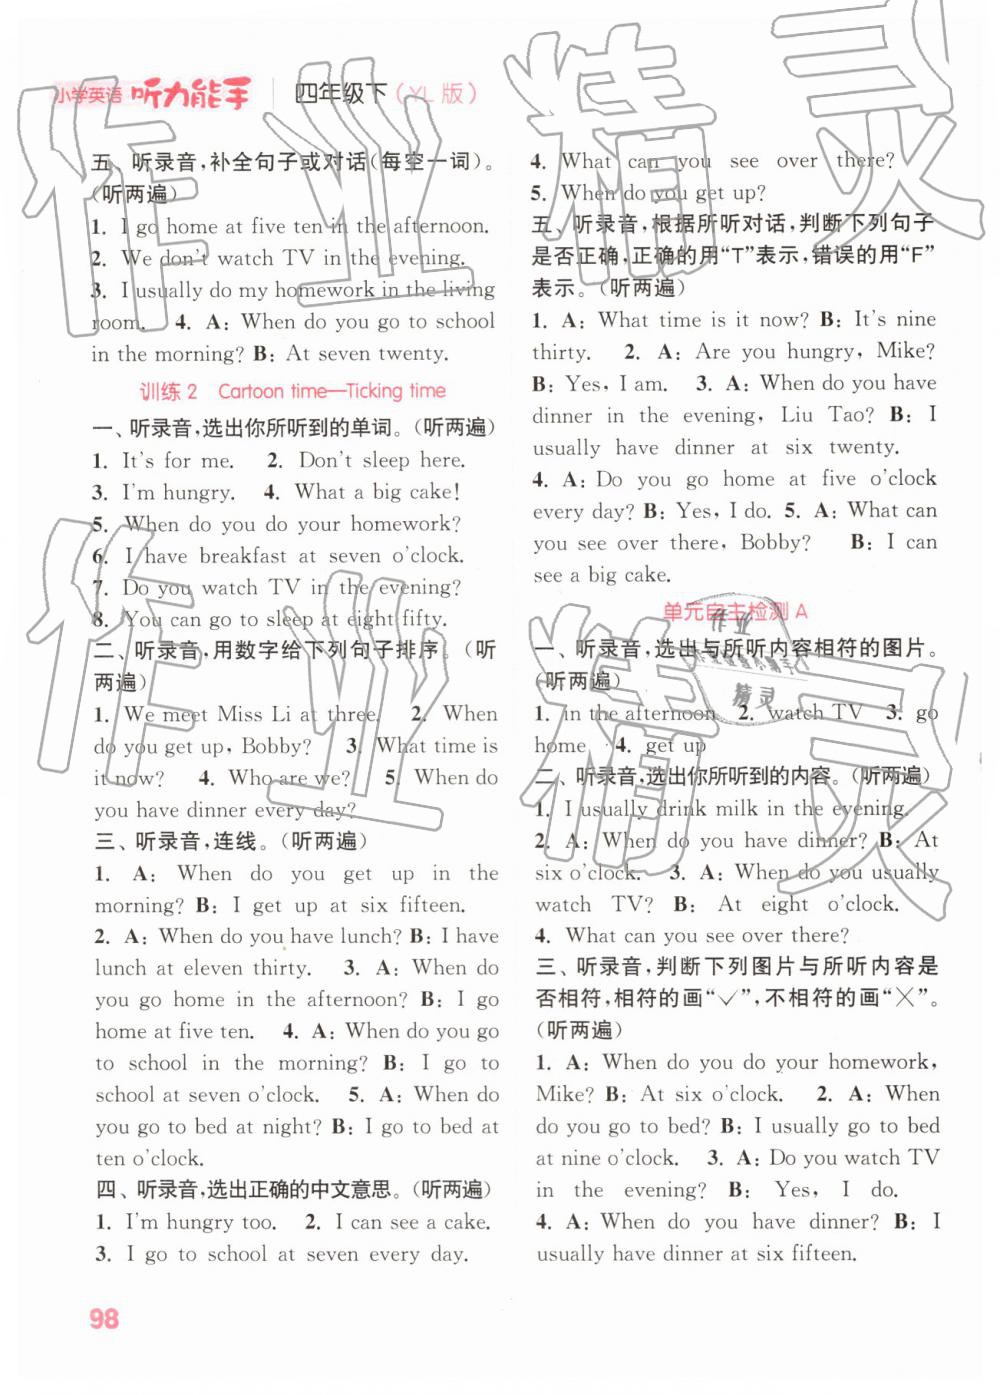 小学英语 听力能手 四年级下（YL版）
五、听录音,补全句子或对话(每空一词)。
(听两遍)
1. I go home at five ten in the afternoon.
2. We don't watch TV in the evening.
3. I usually do my homework in the living
room. 4. A: When do you go to school
in the morning? B: At seven twenty.
训练2 Cartoon time—Ticking time
一、听录音,选出你所听到的单词。(听两遍)
1. It's for me. 2. Don't sleep here.
3. I'm hungry. 4. What a big cake!
5. When do you do your homework?
6. I have breakfast at seven o'clock.
7. Do you watch TV in the evening?
8. You can go to sleep at eight fifty.
二、听录音,用数字给下列句子排序。(听
两遍)
1. We meet Miss Li at three. 2. When
do you get up, Bobby? 3. What time is
it now? 4. Who are we? 5. When do
you have dinner every day?
三、听录音,连线。(听两遍)
1. A: When do you get up in the
morning? B: I get up at six fifteen.
2. A: When do you have lunch? B: I have
lunch at eleven thirty. 3. A: When do
you go home in the afternoon? B: I go
home at five ten. 4. A: When do you go
to school in the morning? B: I go to
school at seven o'clock. 5. A: When do
you go to bed at night? B: I go to bed at
ten o'clock.
四、听录音,选出正确的中文意思。(听两遍)
1. I'm hungry too. 2. I can see a cake.
3. I go to school at seven every day.
4. What can you see over there?
5. When do you get up?
五、听录音,根据所听对话,判断下列句子
是否正确,正确的用“T”表示,错误的用“F”
表示。(听两遍)
1. A: What time is it now? B: It's nine
thirty. 2. A: Are you hungry, Mike?
B: Yes, I am. 3. A: When do you have
dinner in the evening, Liu Tao? B: I
usually have dinner at six twenty.
4. A: Do you go home at five o'clock
every day? B: Yes, I do. 5. A: What can
you see over there, Bobby? B: I can
see a big cake.
单元自主检测A
一、听录音,选出与所听内容相符的图片。
(听两遍)
1. in the afternoon 2. watch TV 3. go
home 4. get up
二、听录音,选出你所听到的内容。(听两遍)
1. I usually drink milk in the evening.
2. A: When do you have dinner? B: At
six o'clock. 3. A: When do you usually
watch TV? B: At eight o'clock.
4. What can you see over there?
三、听录音,判断下列图片与所听内容是
否相符,相符的画“√”,不相符的画“╳”。
(听两遍)
1. A: When do you do your homework,
Mike? B: At six o'clock. 2. A: When
do you go to bed? B: I usually go to bed
at nine o'clock. 3. A: Do you watch TV
in the evening? B: Yes, I do.
4. A: When do you have dinner? B: I
usually have dinner at six fifteen.
98
作业精灵
作业精灵
作业
精灵